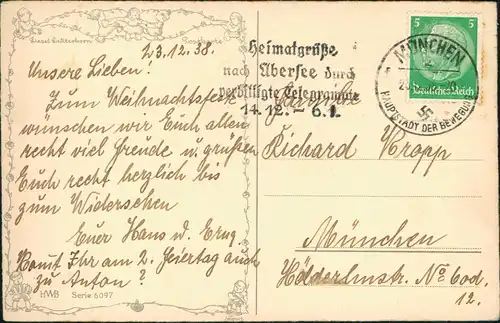 Liesel Lauterborn
23.12.38.
Unsere Lieben!
Zum Weihnachtsfest
wünschen wir Euch allen
recht viel Freude u. grüßen
Euch recht herzlich bis
zum Wiedersehen
Euer Hans u. Erny.
Kommt Ihr am 2. Feiertag auch
zu Anton?
HWB Serie 6097
Heimatgrüße
nach Übersee durch
verbilligte Telegramme
14.12. – 6.1.
5 5
Deutsches Reich
MÜNCHEN
HAUPTSTADT DER BEWEGUNG
Familie
Richard Kropp
München
Hölderlinstr. No 60d.
12.